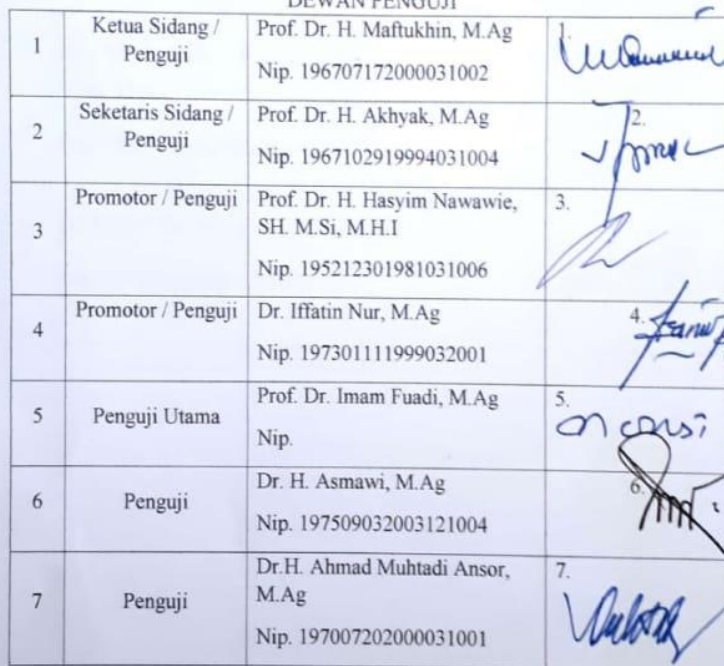 DEWAN PENGUJI
1
Ketua Sidang /
Penguji
Prof. Dr. H. Maftukhin, M.Ag
Nip. 196707172000031002
1.
2
Seketaris Sidang /
Penguji
Prof. Dr. H. Akhyak, M.Ag
Nip. 1967102919994031004
2.
3
Promotor / Penguji
Prof. Dr. H. Hasyim Nawawie,
SH. M.Si, M.H.I
Nip. 195212301981031006
3.
4
Promotor / Penguji
Dr. Iffatin Nur, M.Ag
Nip. 197301111999032001
4.
5
Penguji Utama
Prof. Dr. Imam Fuadi, M.Ag
Nip.
5.
6
Penguji
Dr. H. Asmawi, M.Ag
Nip. 197509032003121004
6.
7
Penguji
Dr.H. Ahmad Muhtadi Ansor,
M.Ag
Nip. 197007202000031001
7.